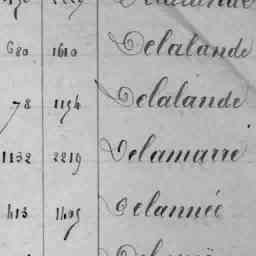 680 1610 Delalande
78 1194 Delalande
1132 2219 Delamarre
413 1409 Delannée